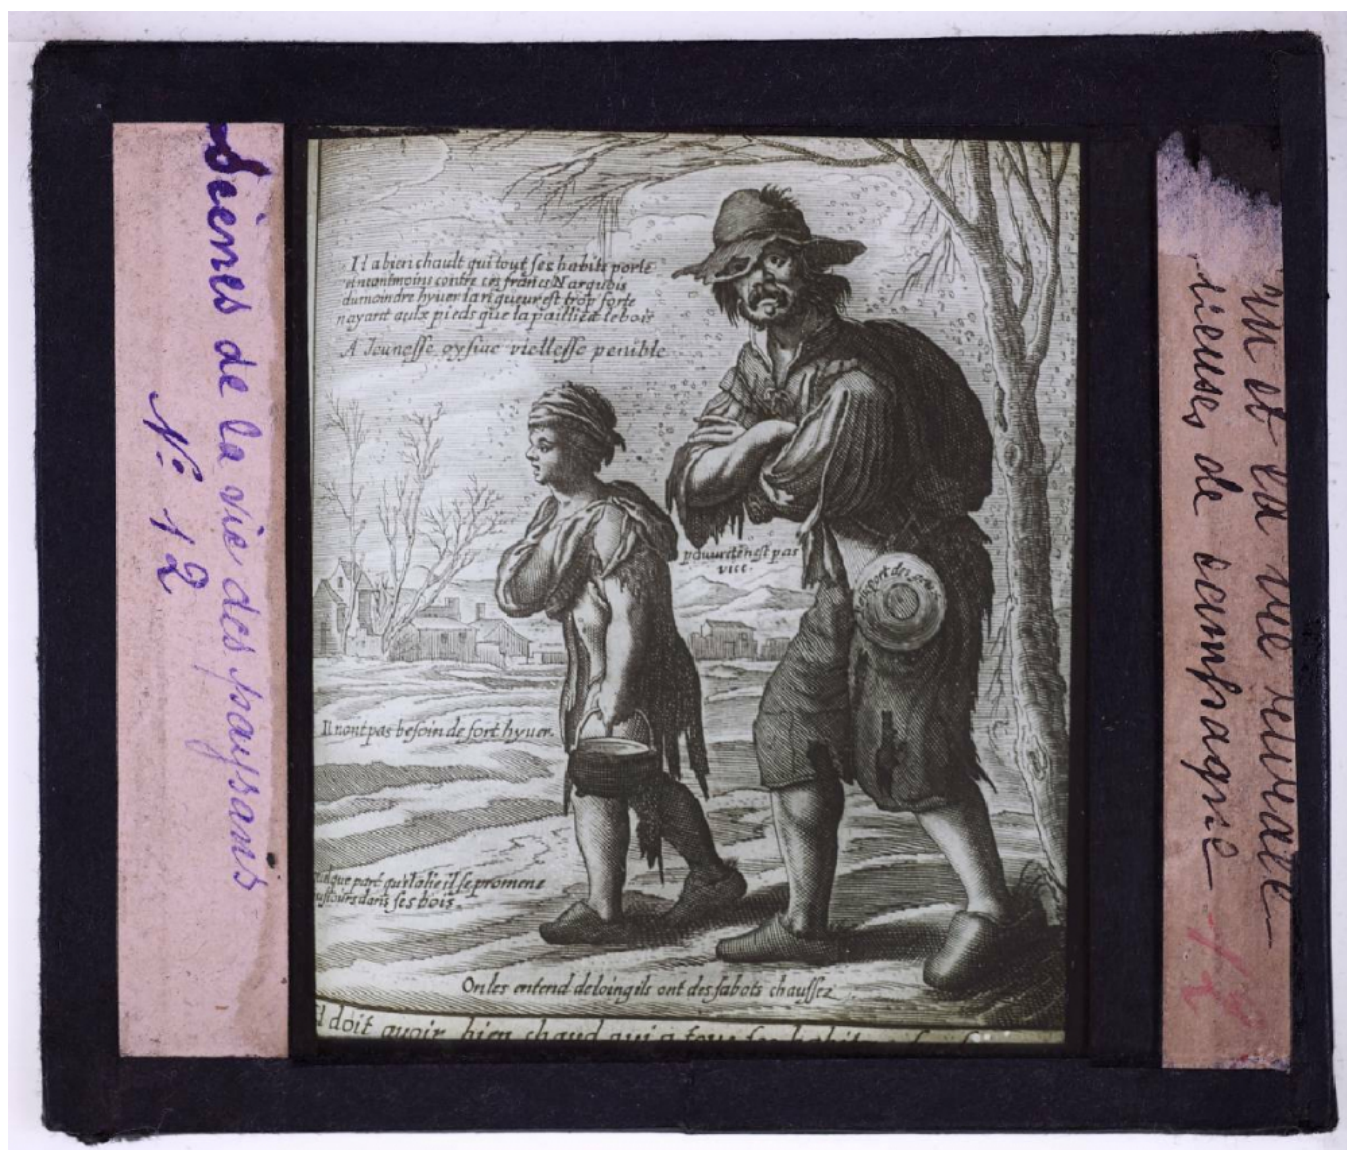 Scènes de la vie des paysans
N: 12
Il a bien chault qui tout ses habits porte
et neantmoins contre ces francs Narquois
du moindre hyuer la rigueur est trop forte
nayant aulx pieds que la paille & le bois
A Jeunesse oysiue viellesse penible
pauureté n'est pas
vice.
Il nont pas besoin de fort hyuer.
part qu'il alle il se promene
dans ses bois.
On les entend de loing ils ont des sabots chaussez
doit auoir bien chaud qui a tous ses habits
et la vie
de campagne
12